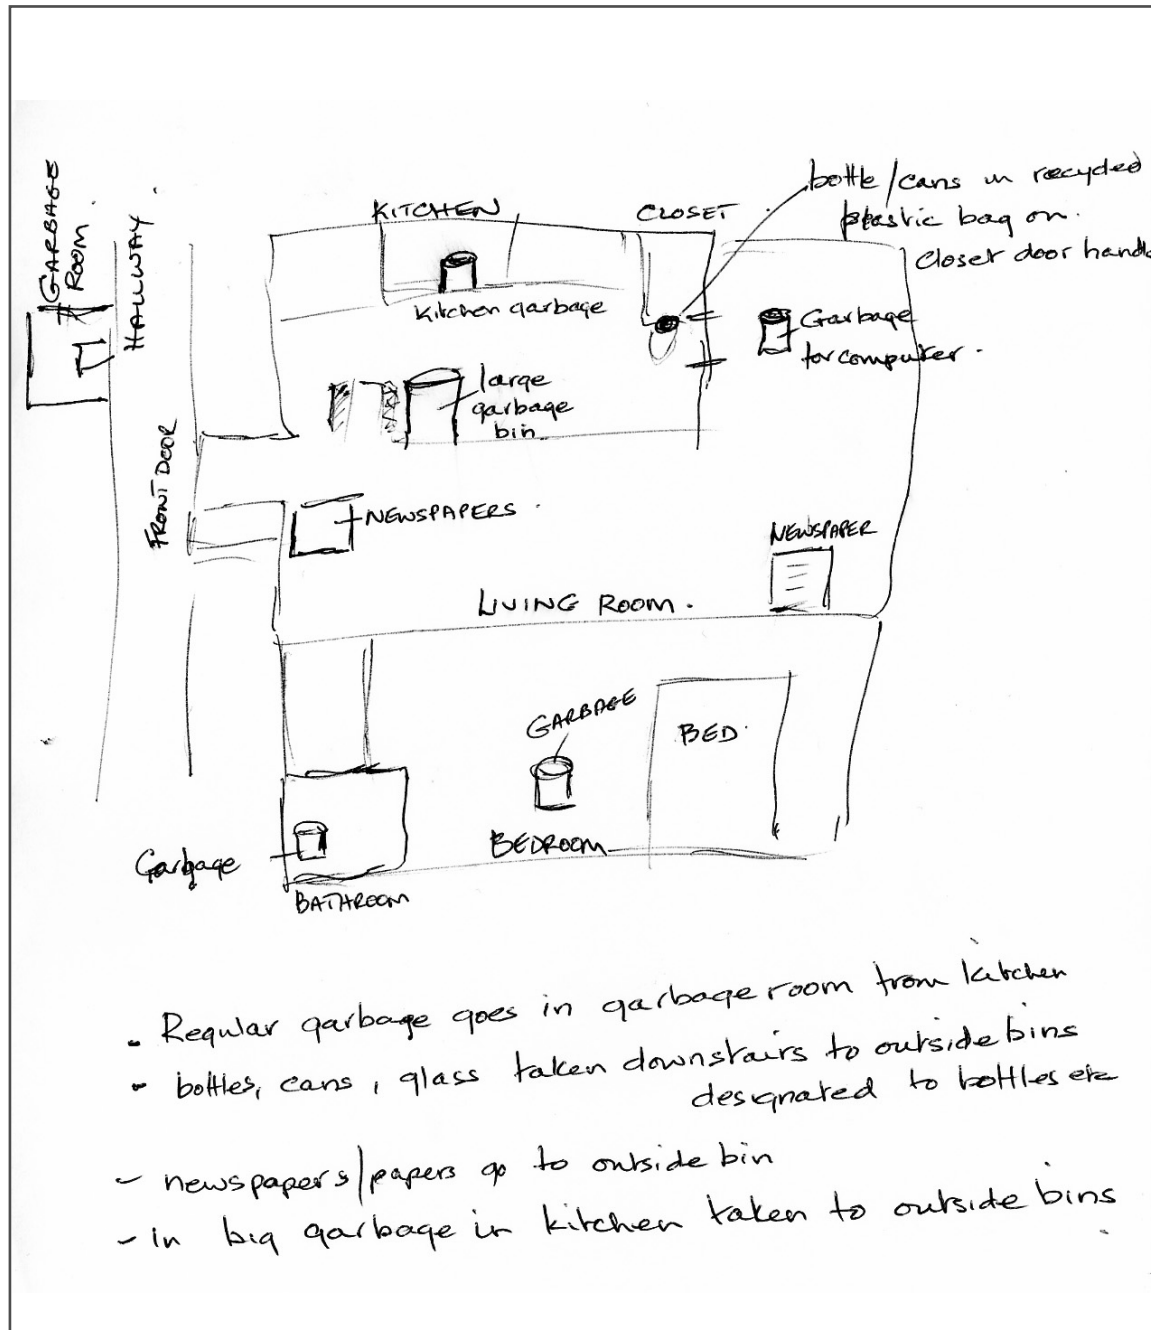 GARBAGE
ROOM.
HALLWAY
KITCHEN
CLOSET
bottle/cans in recycled
plastic bag on
closet door handle
Kitchen garbage
Garbage
for computer.
large
garbage
bin
FRONT DOOR
NEWSPAPERS
NEWSPAPER
LIVING ROOM.
GARBAGE
BED
Garbage
BEDROOM
BATHROOM
- Regular garbage goes in garbage room from kitchen
- bottles, cans, glass taken downstairs to outside bins
designated to bottles etc
- newspapers/papers go to outside bin
- in big garbage in kitchen taken to outside bins